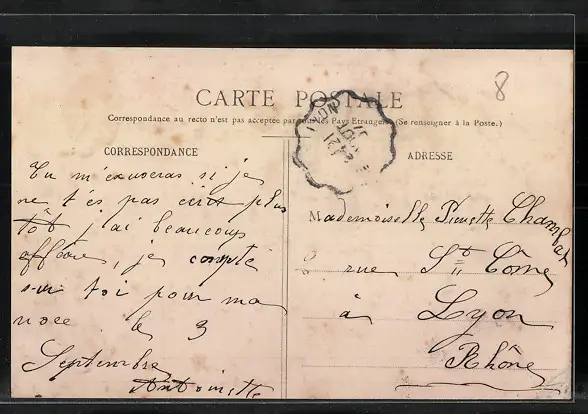 8
CARTE POSTALE
Correspondance au recto n'est pas acceptée par tous les Pays Etrangers (Se renseigner à la Poste.)
CORRESPONDANCE
Tu m'excuseras si je
ne t'es pas écris plus
tôt j'ai beaucoup
affaire, je compte
sur toi pour ma
noce le 3
Septembre
Antoinette
ADRESSE
Mademoiselle Pierrette
rue Ste Côme
à Lyon
Rhône